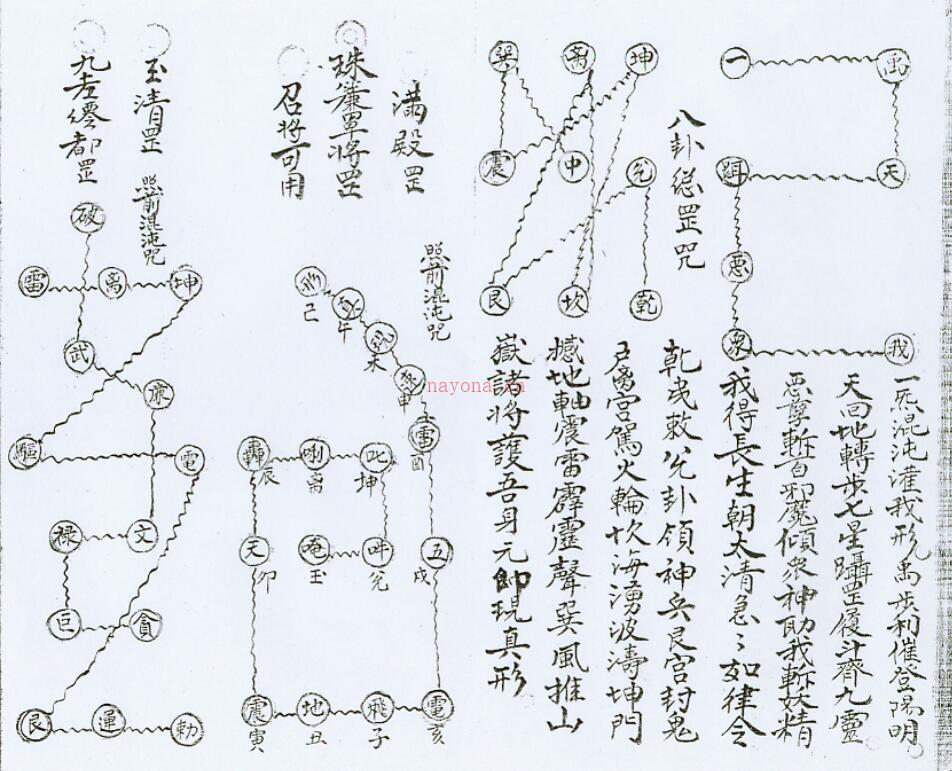 禹
一
天
衆
我
一炁混沌灌我形禹步相催登陽明
天回地轉步七星躡罡履斗齊九靈
惡孽斬百邪魔傾衆神助我斬妖精
我得長生朝太清急々如律令
八卦总罡咒
坤
离
巽
兌
中
震
乾
坎
艮
乾曵敕兌卦領神兵艮宮封鬼
户离宮駕火輪坎海湧波濤坤門
撼地軸震雷霹靂聲巽風推山
嶽諸將護吾身元帥現真形
滿殿罡
照前混沌咒
珠簾罩將罡
召將可用
己
午
未
申
雷
酉
叱
坤
唎
离
轟
辰
五
戌
吽
兌
唵
玉
天
卯
電
亥
飛
子
地
丑
震
寅
玉清罡
照前混沌咒
九老僊都罡
破
坤
离
雷
武
廉
電
驅
文
禄
貪
巨
勅
運
艮
nayona.cn